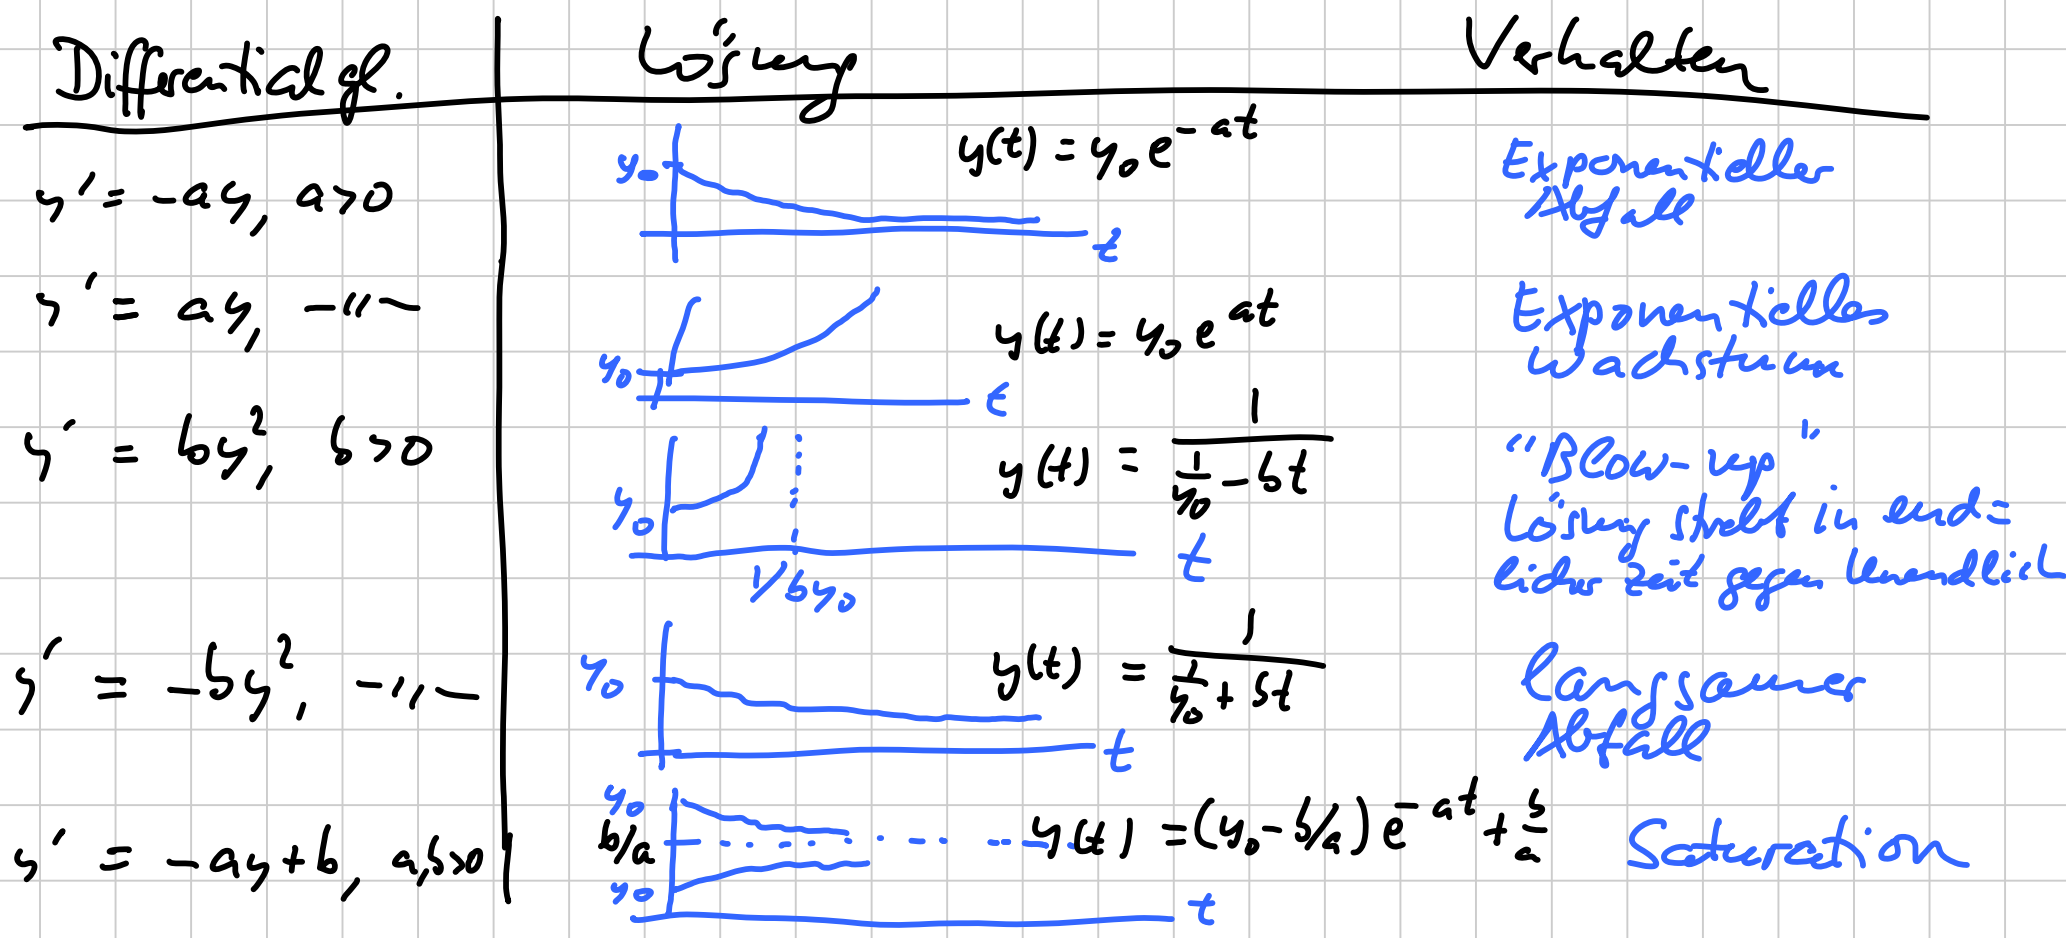 Differentialgl. Lösung Verhalten
y' = -ay, a>0 y₀ t y(t) = y₀ e^{-at} Exponentieller
Abfall
y' = ay, -〃- y₀ t y(t) = y₀ e^{at} Exponentielles
Wachstum
y' = by², b>0 y₀ 1/by₀ t y(t) = 1/(1/y₀ - bt) "Blow-up"
Lösung strebt in end=
licher Zeit gegen Unendlich
y' = -by², -〃- y₀ t y(t) = 1/(1/y₀ + bt) Langsamer
Abfall
y' = -ay+b, a,b>0 y₀ b/a y₀ t y(t) = (y₀ - b/a) e^{-at} + b/a Saturation